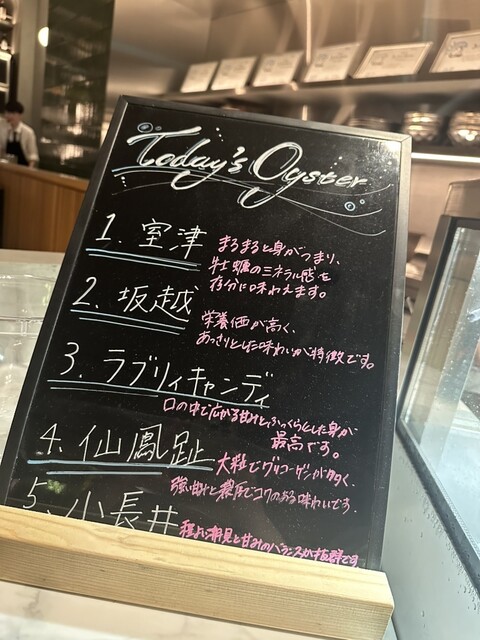 Today's Oyster
1. 室津
まるまると身がつまり、
牡蠣のミネラル感を
存分に味わえます。
2. 坂越
栄養価が高く、
あっさりとした味わいが特徴です。
3. ラブリィキャンディ
口の中で広がる甘みとふっくらとした身が
最高です。
4. 仙鳳趾
大粒でグリコーゲンが多く、
強い甘みと濃厚でコクのある味わいです.
5. 小長井
程よい潮見と甘みのバランスが抜群です